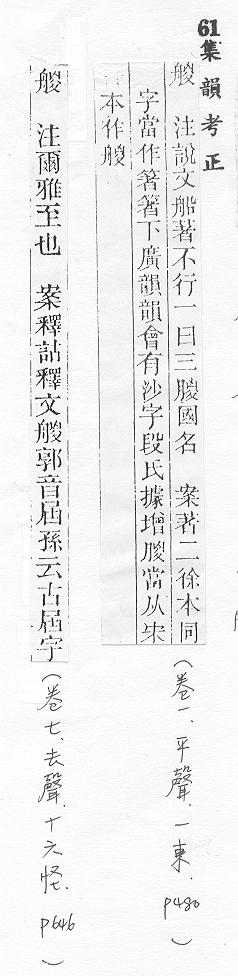 61集韻考正
艐　注說文船著不行一曰三朡國名　案著二徐本同
字當作箸箸下廣韻韻會有沙字段氏據增朡當从宋
本作艐
（卷一、平聲、一東、p480）
艐　注爾雅至也　案釋詁釋文艐郭音屆孫云古屆字
（卷七、去聲、十六怪、p646）